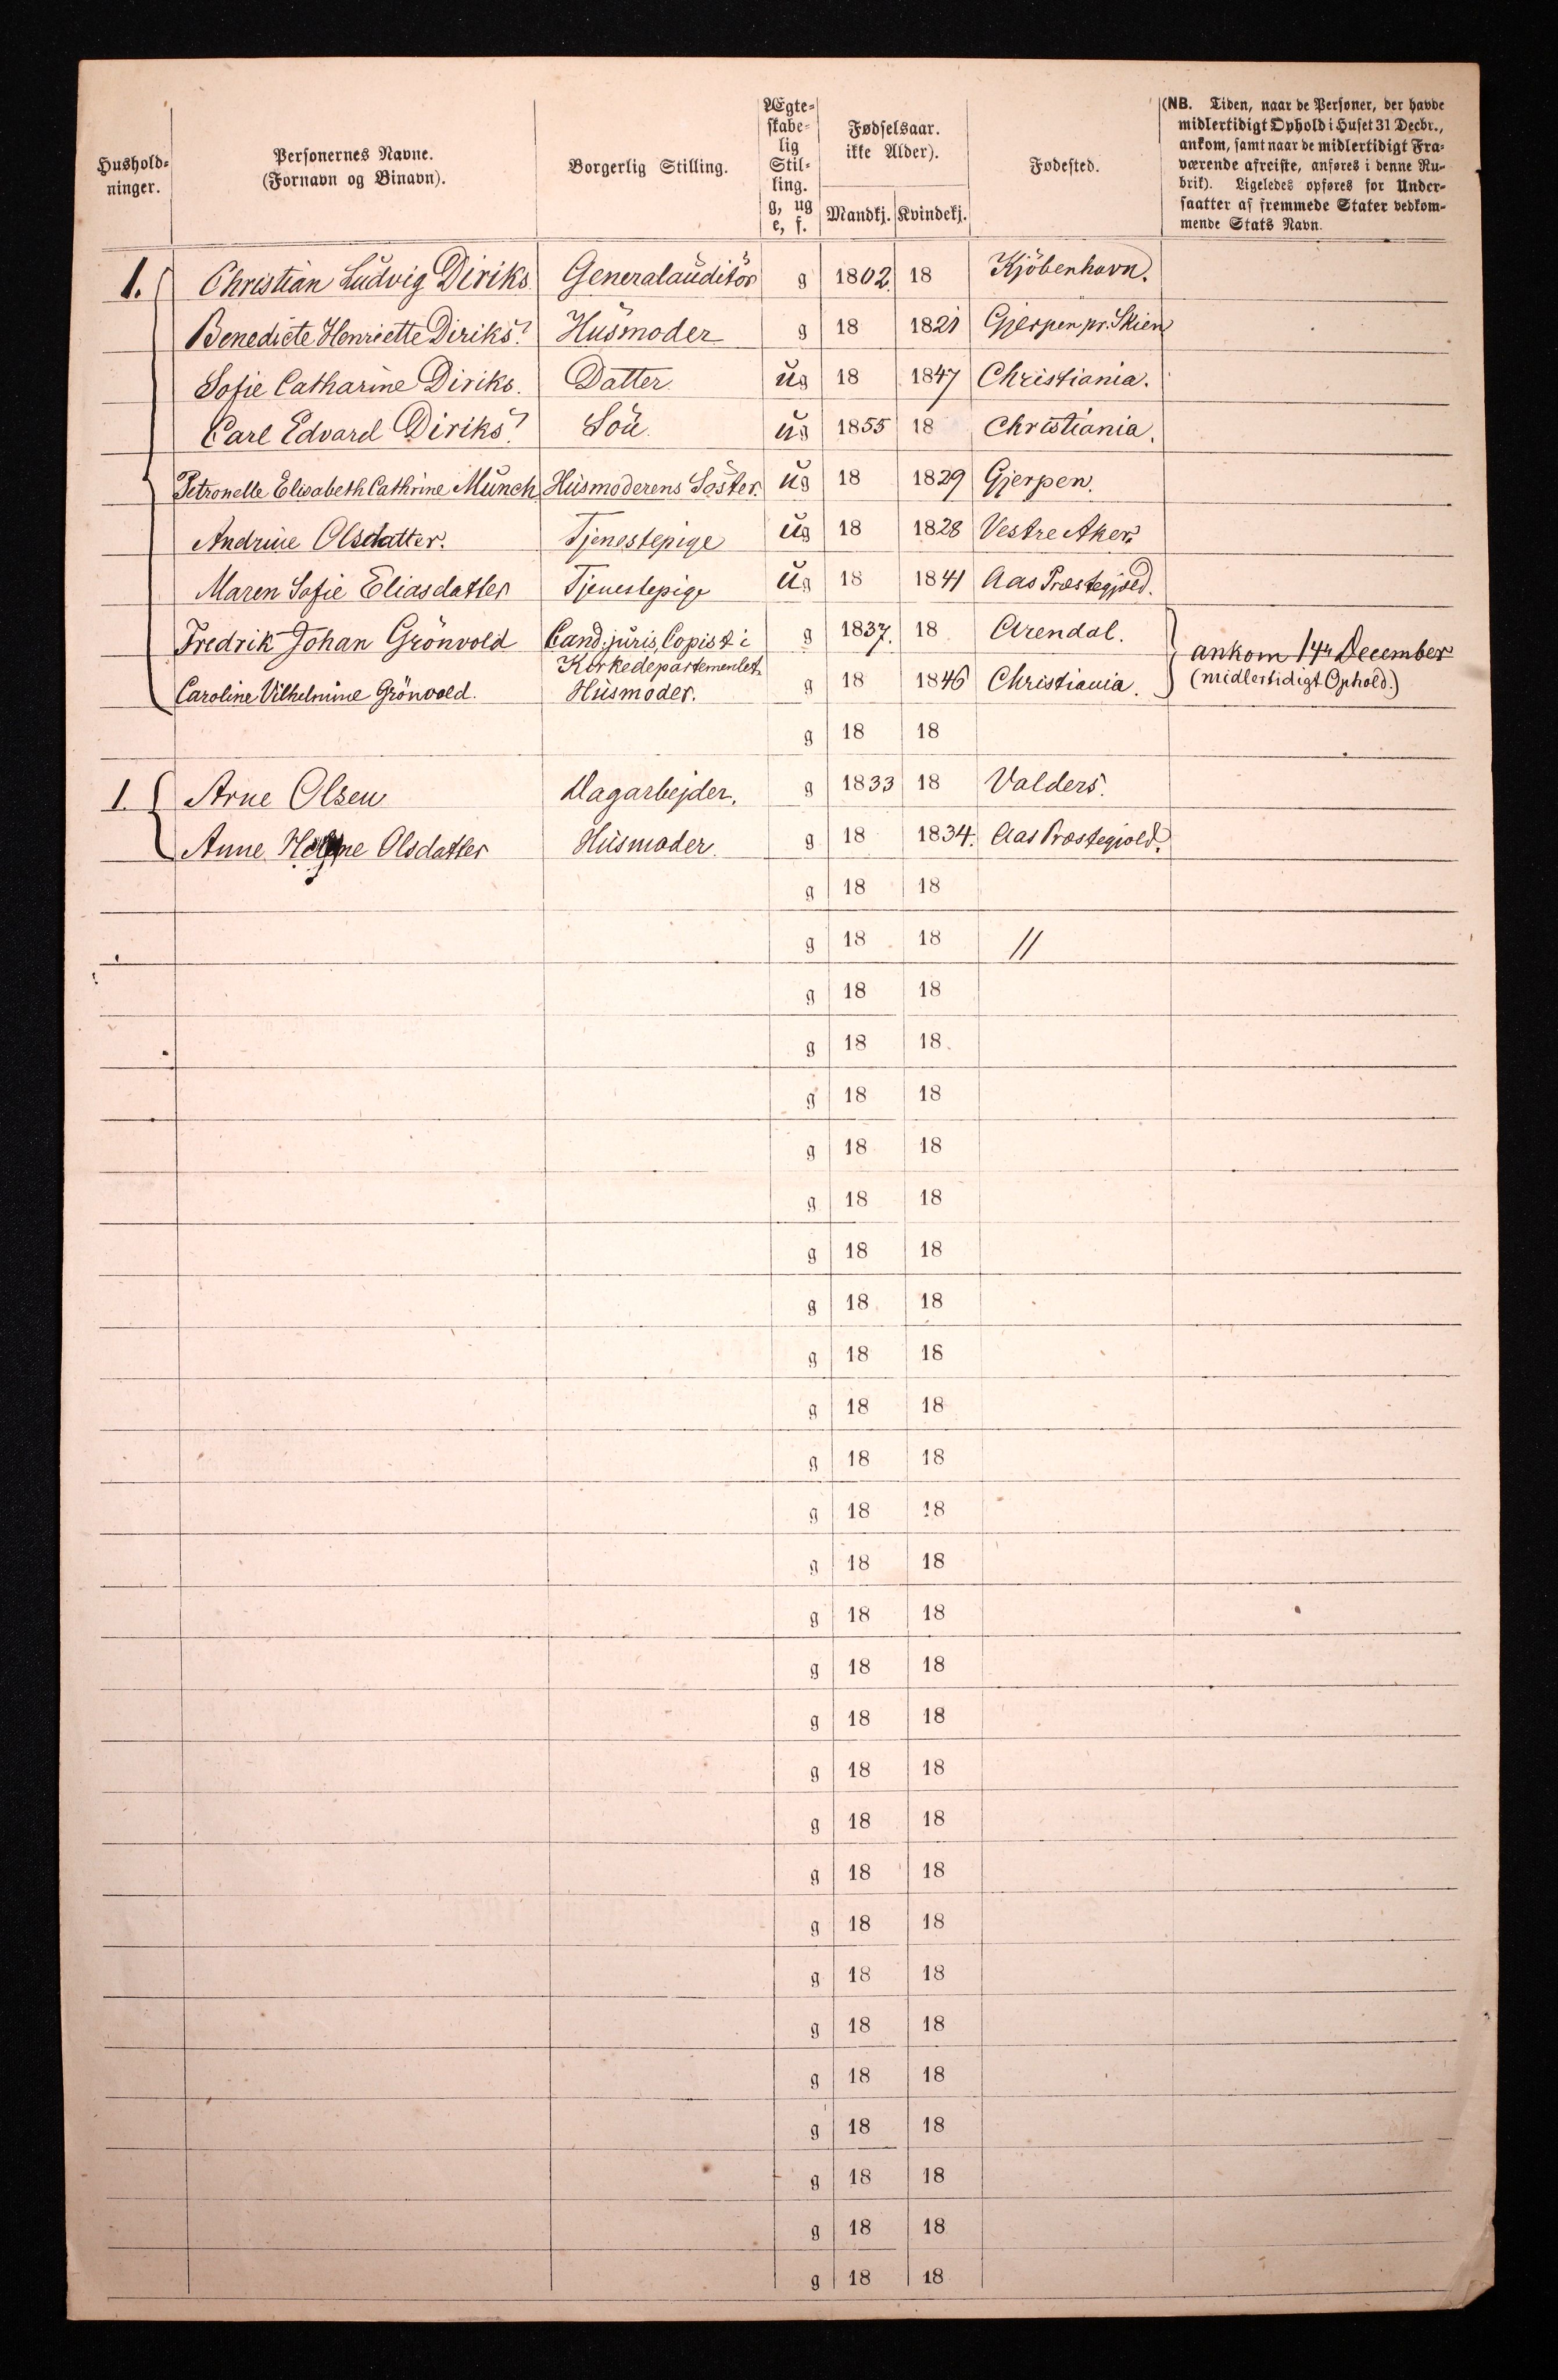 Hushold-
ninger.
Personernes Navne.
(Fornavn og Binavn).
Borgerlig Stilling.
Ægte-
skabe-
lig
Stil-
ling.
g, ug
e, f.
Fødselsaar.
ikke Alder).
Mandkj. Kvindekj.
Fødested.
(NB. Tiden, naar de Personer, der havde
midlertidigt Ophold i Huset 31 Decbr.,
ankom, samt naar de midlertidigt Fra-
værende afreiste, anføres i denne Ru-
brik). Ligeledes opføres for Under-
saatter af fremmede Stater vedkom-
mende Stats Navn.
1. Christian Ludvig Diriks. Generalauditör g 1802. 18 Kjöbenhavn.
Benedicte Henriette Diriks. Husmoder g 18 1821 Gjerpen pr. Skien
Sofie Catharine Diriks. Datter. ug 18 1847 Christiania.
Carl Edvard Diriks. Sön. ug 1855 18 Christiania.
Petronelle Elisabeth Cathrine Munch. Husmoderens Söster. ug 18 1829 Gjerpen.
Andrine Olsdatter. Tjenestepige ug 18 1828 Vestre Aker.
Maren Sofie Eliasdatter Tjenestepige ug 18 1841 Aas Præstegjæld.
Fredrik Johan Grönvold Cand. juris, Copist i g 1837. 18 Arendal.
Kirkedepartementet.
ankom 14de December
Caroline Vilhelmine Grönvold. Husmoder. g 18 1846 Christiania. (midlertidigt Ophold.)
g 18 18
1. Arne Olsen Dagarbejder. g 1833 18 Valders.
Anne Helene Olsdatter Husmoder. g 18 1834. Aas Præstegjæld.
g 18 18
g 18 18 //
g 18 18
g 18 18
g 18 18
g 18 18
g 18 18
g 18 18
g 18 18
g 18 18
g 18 18
g 18 18
g 18 18
g 18 18
g 18 18
g 18 18
g 18 18
g 18 18
g 18 18
g 18 18
g 18 18
g 18 18
g 18 18
g 18 18
g 18 18
g 18 18
g 18 18
g 18 18